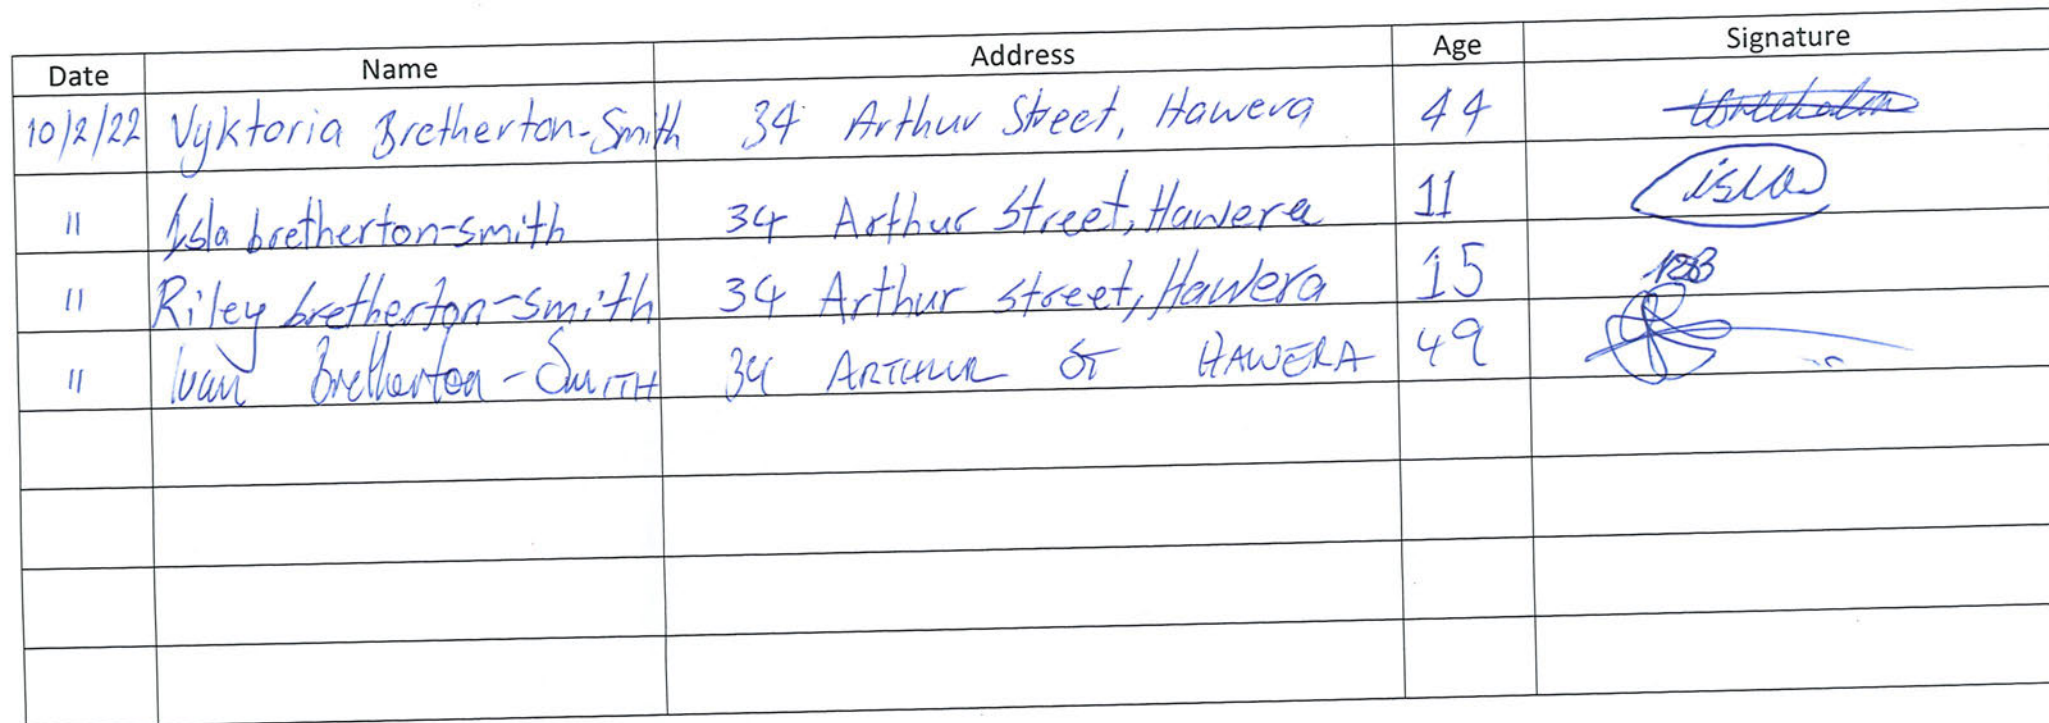 Date Name Address Age Signature
10/2/22 Vyktoria Bretherton-Smith 34 Arthur Street, Hawera 44
11 Isla bretherton-smith 34 Arthur Street, Hawera 11 isla
11 Riley bretherton-smith 34 Arthur street, Hawera 15
11 Ivan Bretherton-SmITH 34 ARTHUR ST HAWERA 49